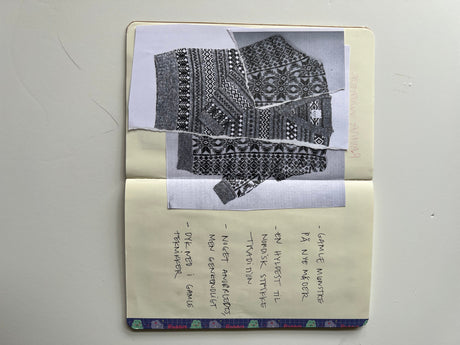 - GAMLE MØNSTRE
PÅ NYE MÅDER
- EN HYLDEST TIL
NORDISK STRIKKE
-TRADITION
- NOGET ANDERLEDES,
MEN GENKENDELIGT
- DYK NED I GAMLE
TEKNIKKER